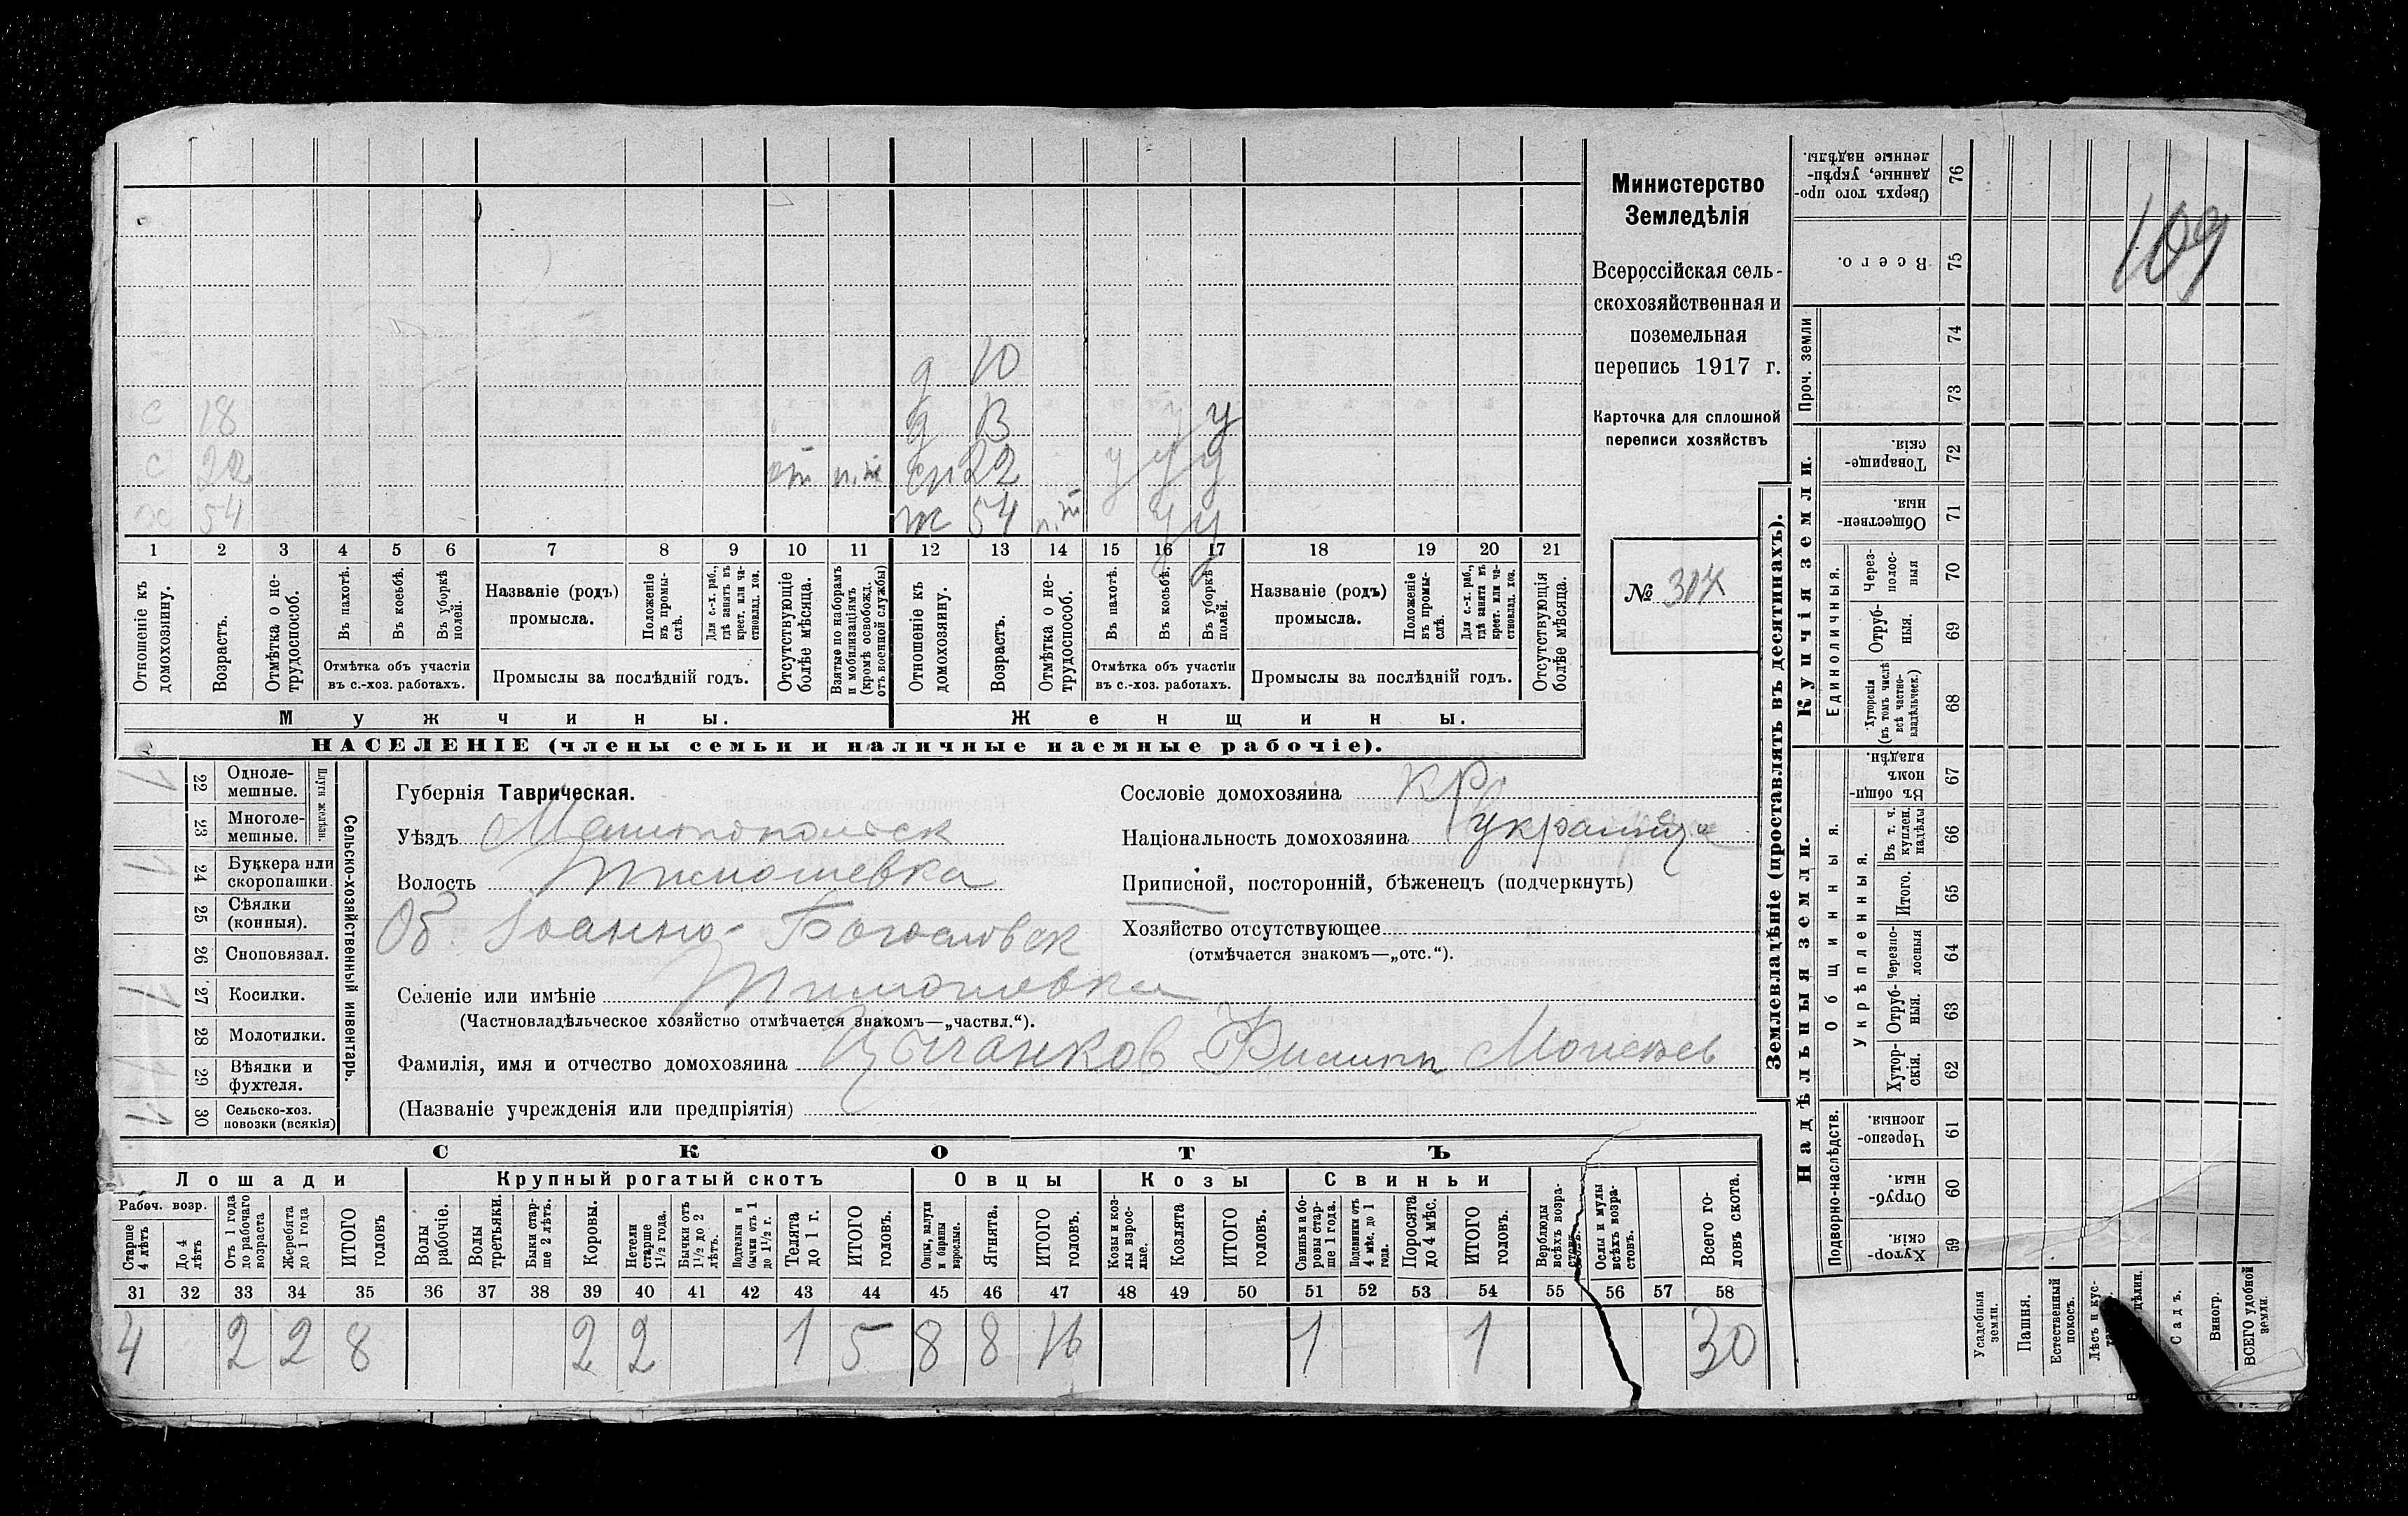 Министерство
Земледѣлія
Всероссійская сель-
скохозяйственная и
поземельная
перепись 1917 г.
Карточка для сплошной
переписи хозяйствъ
№ 307
109
д 10
с 18 д 13 у у
с 22 от п.т сп 22 у у у
х 54 ж 54 п.т у у
1 2 3 4 5 6 7 8 9 10 11 12 13 14 15 16 17 18 19 20 21
Отношеніе къ домохозяину.
Возрастъ.
Отмѣтка о не-трудоспособ.
Въ пахотѣ.
Въ косьбѣ.
Въ уборкѣ полей.
Отмѣтка объ участіи
въ с.-хоз. работахъ.
Названіе (родъ)
промысла.
Положеніе въ промы-слѣ.
Для с.-х. раб., гдѣ занятъ въ крест. или ча-стновлад. хоз.
Промыслы за послѣдній годъ.
Отсутствующіе болѣе мѣсяца.
Взятые по наборамъ и мобилизаціямъ (кромѣ освобожд. отъ военной службы)
Отношеніе къ домохозяину.
Возрастъ.
Отмѣтка о не-трудоспособ.
Въ пахотѣ.
Въ косьбѣ.
Въ уборкѣ полей.
Отмѣтка объ участіи
въ с.-хоз. работахъ.
Названіе (родъ)
промысла.
Положеніе въ промы-слѣ.
Для с.-х. раб., гдѣ занята въ крест. или ча-стновлад. хоз.
Промыслы за послѣдній годъ.
Отсутствующія болѣе мѣсяца.
Мужчины. Женщины.
НАСЕЛЕНІЕ (члены семьи и наличные наемные рабочіе).
Сельско-хозяйственный инвентарь.
Плуги желѣзн.
1 22 Одноле-мешные.
23 Многоле-мешные.
1 24 Буккера или скоропашки.
25 Сѣялки (конныя).
26 Сноповязал.
1 27 Косилки.
28 Молотилки.
1 29 Вѣялки и фухтеля.
1 30 Сельско-хоз. повозки (всякія)
Губернія Таврическая.
Уѣздъ Мелитопольск
Волость Тимошевка
Об. Іоанно-Богословск
Селеніе или имѣніе Тимошевка
(Частновладѣльческое хозяйство отмѣчается знакомъ—„частвл.“).
Фамилія, имя и отчество домохозяина Цыганков Филипп Моисеев
(Названіе учрежденія или предпріятія)
Сословіе домохозяина кр
Національность домохозяина украинец
Приписной, посторонній, бѣженецъ (подчеркнуть)
Хозяйство отсутствующее
(отмѣчается знакомъ—„отс.“).
СКОТЪ
Лошади Крупный рогатый скотъ Овцы Козы Свиньи
Рабоч. возр.
Старше 4 лѣтъ
До 4 лѣтъ
Отъ 1 года до рабочаго возраста
Жеребята до 1 года
ИТОГО головъ
Волы рабочіе.
Волы третьяки.
Быки стар-ше 2 лѣтъ.
Коровы.
Нетели старше 1½ года.
Бычки отъ 1½ до 2 лѣтъ.
Подтелки и бычки отъ 1 до 1½ г.
Телята до 1 г.
ИТОГО головъ.
Овцы, валухи и бараны взрослые.
Ягнята.
ИТОГО головъ.
Козы и коз-лы взрос-лые.
Козлята
ИТОГО головъ.
Свиньи и бо-ровы стар-ше 1 года.
Подсвинки отъ 4 мѣс. до 1 года.
Поросята до 4 мѣс.
ИТОГО головъ.
Верблюды всѣхъ возра-стовъ.
Ослы и мулы всѣхъ возра-стовъ.
Всего го-ловъ скота.
31 32 33 34 35 36 37 38 39 40 41 42 43 44 45 46 47 48 49 50 51 52 53 54 55 56 57 58
4 2 2 8 2 2 1 5 8 8 16 1 1 30
Землевладѣніе (проставлять въ десятинахъ).
Надѣльныя земли.
Купчія земли.
Проч. земли
Подворно-наслѣдств.
Общинныя.
Укрѣпленныя.
Единоличныя.
76 Сверхъ того про-данные, укрѣп-ленные надѣлы.
75 Всего.
74
73
72 Товарище-скія.
71 Обществен-ныя.
70 Через-полос-ныя
69 Отруб-ныя.
68 Хуторскія (въ томъ числѣ всѣ частно-владѣльческ.)
67 Въ общи-номъ владѣн.
66 Въ т. ч. куплен. надѣлы
65 Итого.
64 Черезпо-лосныя
63 Отруб-ныя.
62 Хутор-скія.
61 Черезпо-лосныя.
60 Отруб-ныя.
59 Хутор-скія.
Усадебныя земли.
Пашня.
Естественный покосъ.
Лѣсъ и кус-
Садъ.
Виногр.
ВСЕГО удобной земли.